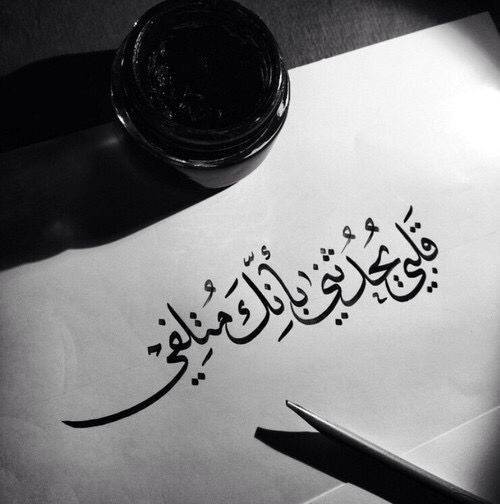 قَلبي يُحدُثني بأنّكَ مُتلِفي